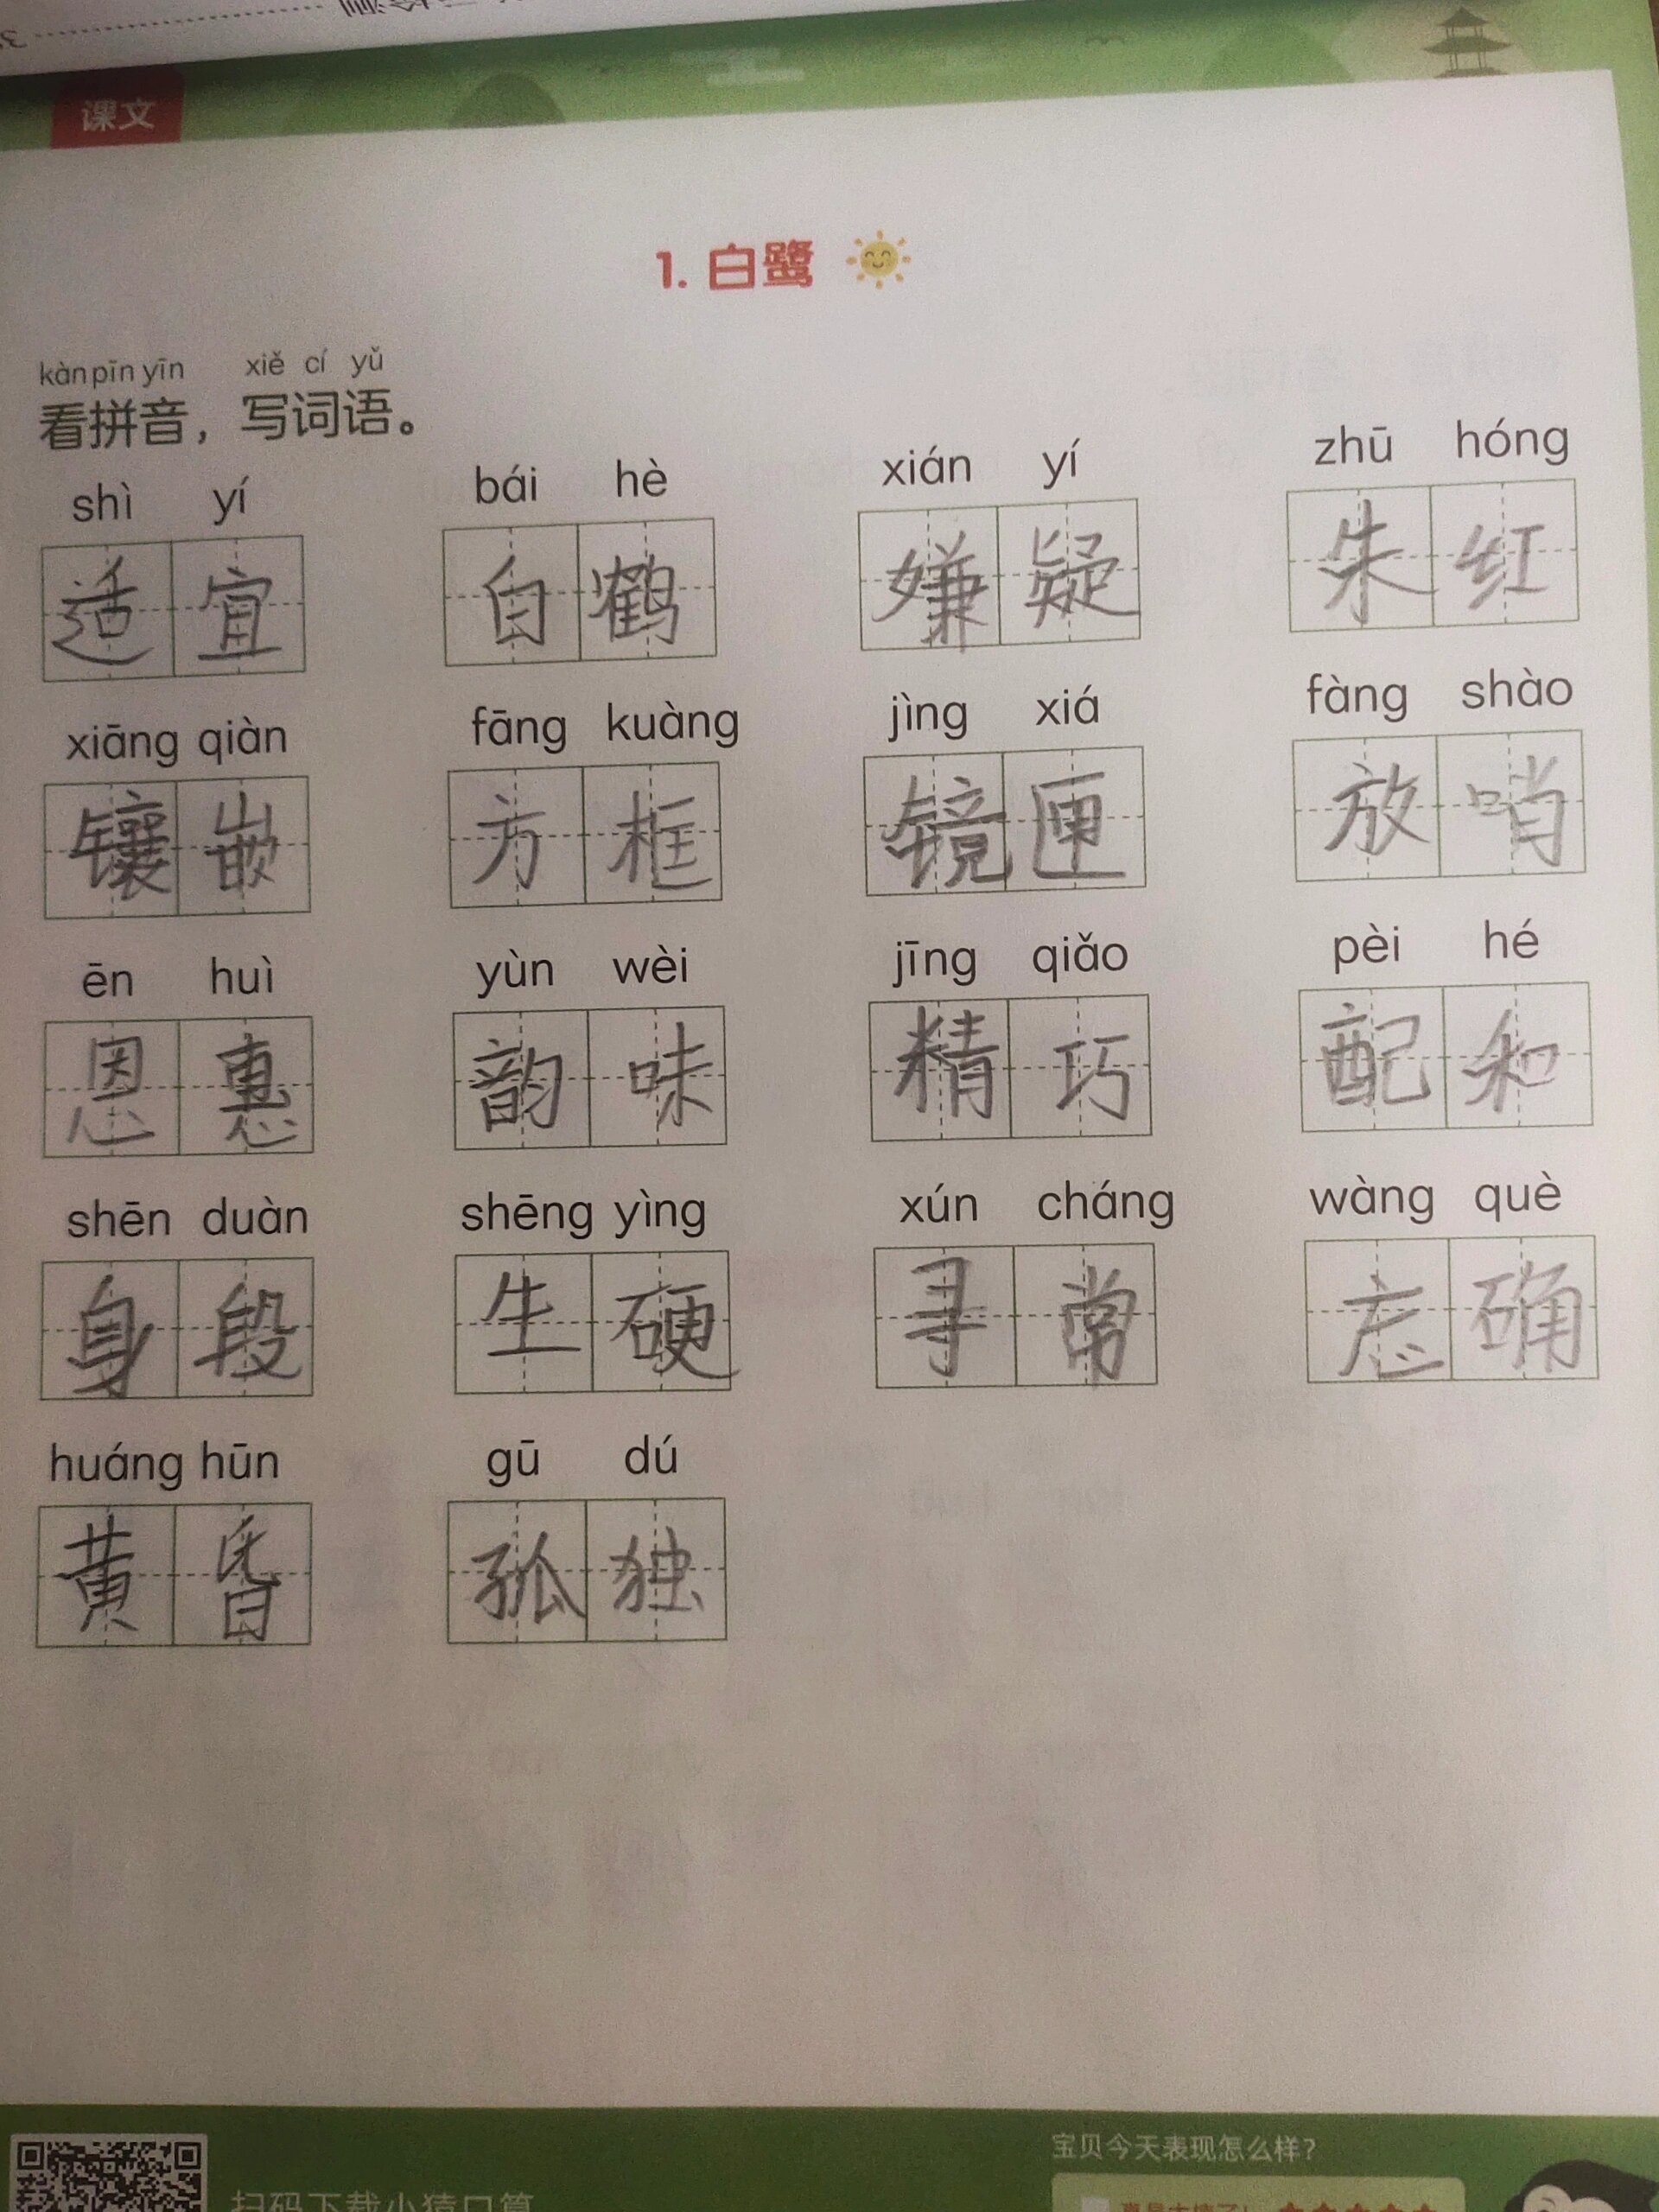 课文
1. 白鹭
kàn pīn yīn xiě cí yǔ
看拼音，写词语。
shì yí bái hè xián yí zhū hóng
适宜 白鹤 嫌疑 朱红
xiāng qiàn fāng kuàng jìng xiá fàng shào
镶嵌 方框 镜匣 放哨
ēn huì yùn wèi jīng qiǎo pèi hé
恩惠 韵味 精巧 配和
shēn duàn shēng yìng xún cháng wàng què
身段 生硬 寻常 忘确
huáng hūn gū dú
黄昏 孤独
宝贝今天表现怎么样？
扫码下载小猿口算